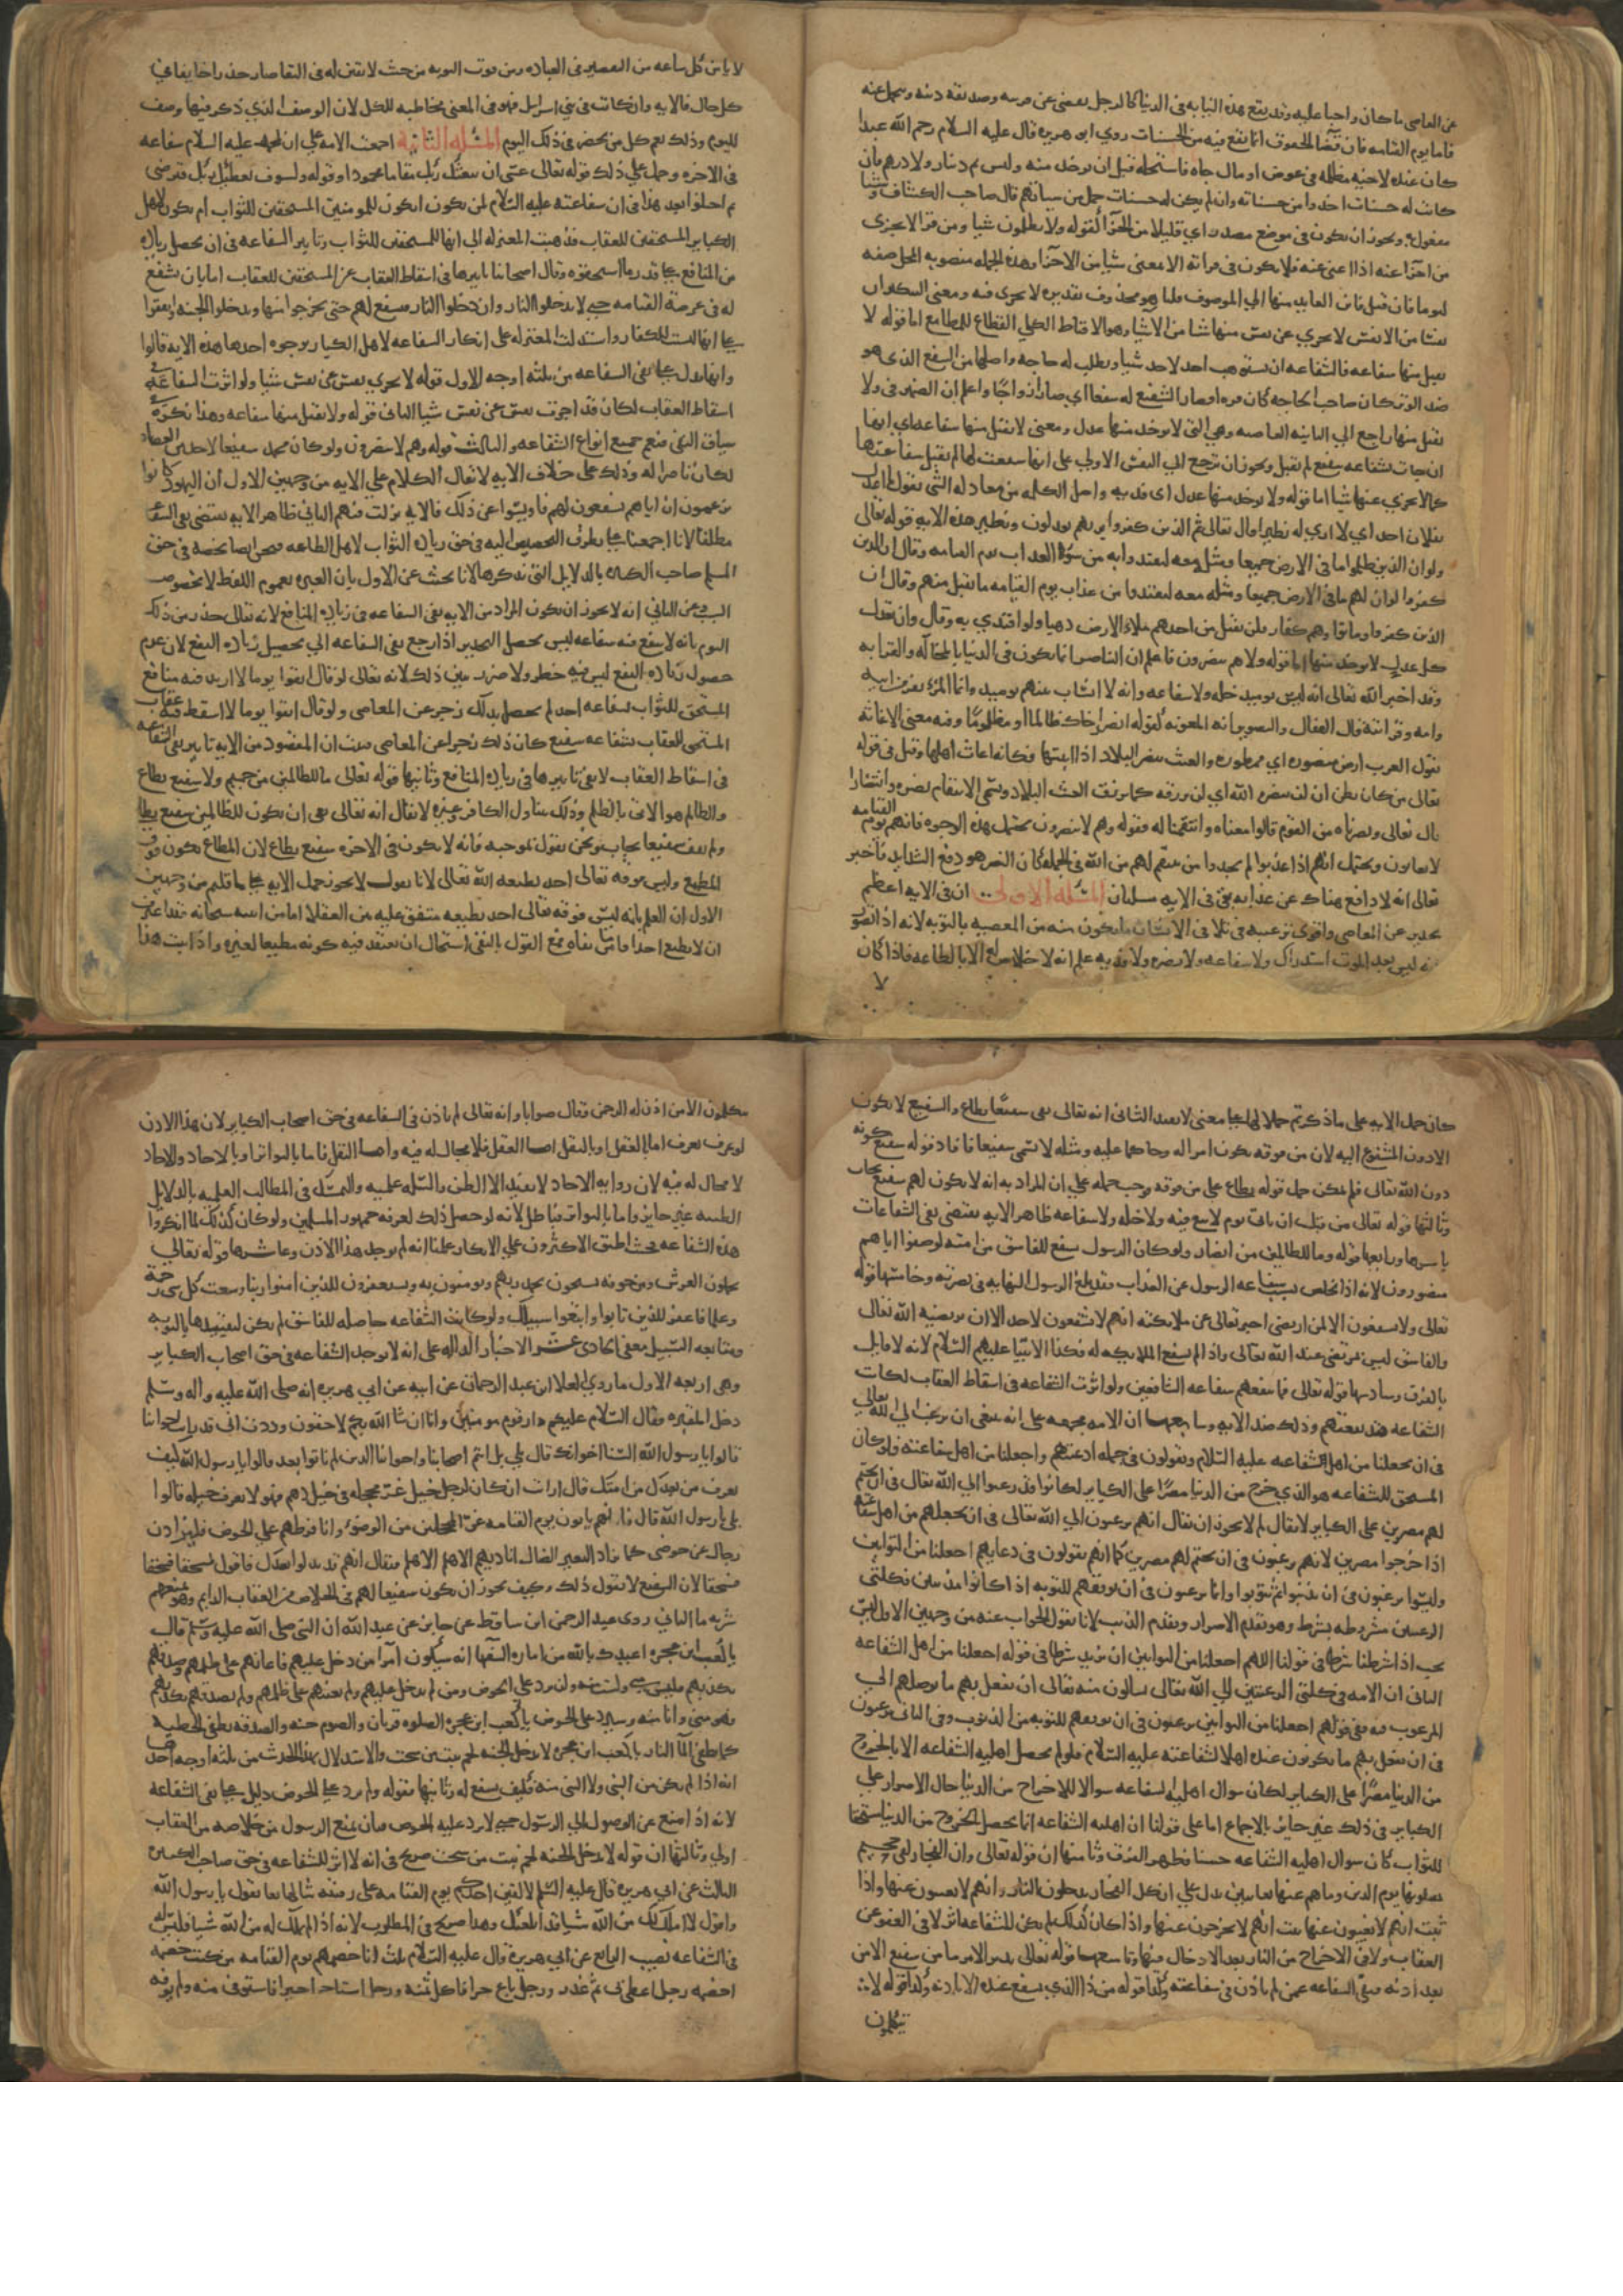 عن العاصي ما كان واجبا عليه وقد يقع هذه النيابة في الدنيا كالرجل يقضي عن قريبه وصديقه دينه ويتحمل عنه
فاما يوم القيامه فان قضا الحقوق انما يقع فيه من الحسنات روي ابو هريره قال عليه السلام رحم الله عبدا
كان عنده لاخيه مظلمه في عرض او مال جاه فاستحله قبل ان يوخذ منه وليس ثم دينار ولا درهم فان
كانت له حسنات اخذ من حسناته وان لم يكن له حسنات حمل من سياتهم قال صاحب الكشاف وشيا
مفعول به ويجوز ان يكون في موضع مصدر اي قليلا من الجزا كقوله ولا يظلمون شيا ومن قرا لا يجزي
من اجزا عنه اذا اغنى عنه فلا يكون في قراته الا بمعنى شيا من الاجزا وهذه الجمله منصوبه المحل صفه
ليوما فان قيل فاين العايد منها الي الموصوف قلنا هو محذوف تقديره لا يجزي فيه ومعنى التنكير ان
نفسا من الانفس لا يجزي عن نفس منها شيا من الاشيا وهو الاقناط الكلي القطاع للمطامع اما قوله لا
يقبل منها شفاعه فالشفاعه ان يستوهب احد لاحد شيا ويطلب له حاجه واصلها من الشفع الذي هو
ضد الوتر كان صاحب الحاجه كان فردا فصار الشفيع له شفعا اي صارا زوجا واعلم ان الضمير في ولا
يقبل منها راجع الي الثانيه العاصيه وهي التي لا يوخذ منها عدل ومعنى لا يقبل منها شفاعه اي انها
ان جات بشفاعه شفيع لم تقبل ويجوز ان ترجع الي النفس الاولي على انها لو شفعت لها لم يقبل شفاعتها
كما لا يجزي عنها شيا اما قوله ولا يوخذ منها عدل اى فديه واصل الكلمه من معادله الشي تقول ما اعدل
بفلان احد اي لا اري له نظيرا قال تعالى ثم الذين كفروا بربهم يعدلون ونظير هذه الايه قوله تعالى
ولو ان الذين ظلموا ما في الارض جميعا ومثله معه لافتدوا به من سوء العذاب يوم القيامه وقال ان الذين
كفروا لو ان لهم ما في الارض جميعا ومثله معه ليفتدوا من عذاب يوم القيامه ما تقبل منهم وقال ان
الذين كفروا وماتوا وهم كفار فلن يقبل من احدهم ملاء الارض ذهبا ولو افتدي به وقال وان تعدل
كل عدل لا يوخذ منها اما قوله ولا هم ينصرون فاعلم ان التناصر انما يكون في الدنيا بالمخاله والقرابه
وقد اخبر الله تعالى انه ليس يوميذ خله ولا شفاعه وانه لا انساب بينهم يوميذ وانما المرء يفر من ابيه
وامه وقرابته قال القفال والنصر يراد به المعونه كقوله انصر اخاك ظالما او مظلوما ومنه معنى الاغاثه
تقول العرب ارض منصوره اي ممطوره والغيث ينصر البلاد اذا انبتها فكانه اغاث اهلها وقيل في قوله
تعالى من كان يظن ان لن ينصره الله اي لن يرزقه كما يرزق الغيث البلاد ويسمى الانتقام نصره وانتصارا
قال تعالى ونصرناه من القوم قالوا معناه وانتقمنا له فقوله وهم لا ينصرون يحتمل هذه الوجوه فانهم يوم القيامه
لا يغاثون ويحتمل انهم اذا عذبوا لم يجدوا من ينتقم لهم من الله في الجمله كان النصر هو دفع الشدايد فاخبر
تعالى انه لا دافع هناك عن عذابه بقي في الايه مسلتان المسئله الاولى ان في الايه اعظم
تحذير عن المعاصي واقوي ترغيب في تلافي الانسان ما يكون منه من المعصيه بالتوبه لانه اذا تصور
انه ليس بعد الموت استدراك ولا شفاعه ولا نصره ولا فديه علم انه لا خلاص له الا بالطاعه فاذا كان
لا
لا يامن كل ساعه من التقصير في العباده ومن فوت التوبه من حيث لا يقين له في البقا صار حذرا خايفا في
كل حال فالايه وان كانت في بني اسرايل فهي في المعنى مخاطبه للكل لان الوصف الذي ذكر فيها وصف
لليوم وذلك يعم كل من يحضر في ذلك اليوم المسئله الثانيه اجمعت الامه علي ان لمحمد عليه السلام شفاعه
في الاخره وحمل علي ذلك قوله تعالى عسى ان يبعثك ربك مقاما محمودا وقوله ولسوف يعطيك ربك فترضى
ثم اختلفوا بعد هذا في ان شفاعته عليه السلام لمن تكون اتكون للمومنين المستحقين للثواب ام تكون لاهل
الكباير المستحقين للعقاب فذهبت المعتزله الي انها للمستحقين للثواب وتاثير الشفاعه في ان يحصل زياده
من المنافع على قدر ما استحقوه وقال اصحابنا تاثيرها في اسقاط العقاب عن المستحقين للعقاب اما بان يشفع
له في عرصة القيامه حتى لا يدخلوا النار وان دخلوا النار فيشفع لهم حتى يخرجوا منها ويدخلوا الجنه واتفقوا
على انها ليست للكفار واستدلت المعتزله على انكار الشفاعه لاهل الكباير بوجوه احدها هذه الايه قالوا
وانها تدل على نفي الشفاعه من ثلثه اوجه الاول قوله لا يجزي نفس عن نفس شيا ولو اثرت الشفاعه في
اسقاط العقاب لكان قد اجزت نفس عن نفس شيا الثاني قوله ولا يقبل منها شفاعه وهذا نكره في
سياق النفي فيعم جميع انواع الشفاعه والثالث قوله وهم لا ينصرون ولو كان محمد شفيعا لاحد من العصاه
لكان ناصرا له وذلك على خلاف الايه لا يقال الكلام علي الايه من وجهين الاول ان اليهود كانوا
يزعمون ان اباهم يشفعون لهم فاويسوا عن ذلك فالايه نزلت فيهم الثاني ظاهر الايه يقتضي نفي الشفاعه
مطلقا الا انا اجمعنا على تطرق التخصيص اليه في حق زياده الثواب لاهل الطاعه فنحن ايضا نخصه في حق
المسلم صاحب الكبيره بالدلايل التي نذكرها لانا نجيب عن الاول بان العبره بعموم اللفظ لا بخصوص
السبب وعن الثاني انه لا يجوز ان يكون المراد من الايه نفي الشفاعه في زياده المنافع لانه تعالى حذر من ذلك
اليوم بانه لا ينفع فيه شفاعه ليس يحصل التحذير اذا رجع نفي الشفاعه الي تحصيل زياده النفع لان عدم
حصول زياده النفع ليس فيه خطر ولا ضرر يبين ذلك لانه تعالى لو قال اتقوا يوما لا ازيد فيه منافع
المستحق للثواب بشفاعه احد لم يحصل بذلك زجر عن المعاصي ولو قال اتقوا يوما لا اسقط فيه عقاب
المستحق للعقاب بشفاعه شفيع كان ذلك زجرا عن المعاصي فثبت ان المقصود من الايه تاثير نفي الشفاعه
في اسقاط العقاب لا نفي تاثيرها في زياده المنافع وثانيها قوله تعالى ما للظالمين من حميم ولا شفيع يطاع
والظالم هو الاتي بالظلم وذلك يتناول الكافر وغيره لا يقال انه تعالى نفى ان يكون للظالمين شفيع يطاع
ولم ينف شفيعا يجاب ونحن نقول بموجبه فانه لا يكون في الاخره شفيع يطاع لان المطاع يكون فوق
المطيع وليس فوقه تعالى احد يطيعه الله تعالى لانا نقول لا يجوز حمل الايه على ما قلتم من وجهين
الاول ان العلم بانه ليس فوقه تعالى احد يطيعه متفق عليه بين العقلا اما من اثبته سبحانه فقد اعترف
ان لا يطيع احدا واما من نفاه فمع القول بالنفي استحال ان يعتقد فيه كونه مطيعا لغيره واذا ثبت هذا
كان حمل الايه على ما ذكرتم حملا لها على معنى لا يفيد الثاني انه تعالى نفى شفيعا يطاع والشفيع لا يكون
الا دون المشفوع اليه لان من فوقه يكون امرا له وحاكما عليه ومثله لا يسمى شفيعا فافاد قوله شفيع كونه
دون الله تعالى فلم يمكن حمل قوله يطاع على من فوقه وجب حمله علي ان المراد به انه لا يكون لهم شفيع يجاب
وثالثها قوله تعالى من قبل ان ياتي يوم لا بيع فيه ولا خله ولا شفاعه ظاهر الايه يقتضي نفي الشفاعات
باسرها ورابعها قوله وما للظالمين من انصار ولو كان الرسول يشفع للفاسق من امته لوصفوا اباهم
منصورون لانه اذا تخلص بسبب شفاعه الرسول عن العذاب فقد بلغ الرسول النهايه في نصرته وخامسها قوله
تعالى ولا يشفعون الا لمن ارتضى اخبر تعالى عن ملايكته انهم لا يشفعون لاحد الا ان يرتضيه الله تعالى
والفاسق ليس بمرتضى عند الله تعالى واذا لم يشفع الملايكه له فكذا الانبيا عليهم السلام لانه لا قايل
بالفرق وسادسها قوله تعالى فما تنفعهم شفاعه الشافعين ولو اثرت الشفاعه في اسقاط العقاب لكانت
الشفاعه قد نفعتهم وذلك ضد الايه وسابعها ان الامه مجمعه على انه ينبغي ان نرغب الي الله تعالي
في ان يجعلنا من اهل الشفاعه عليه السلام ويقولون في جمله ادعيتهم واجعلنا من اهل شفاعته فلو كان
المستحق للشفاعه هو الذي خرج من الدنيا مصرا على الكباير لكانوا قد رغبوا الي الله تعالى في ان يختم
لهم مصرين على الكباير لا يقال لم لا يجوز ان يقال انهم يرغبون الي الله تعالى في ان يجعلهم من اهل شفاعته
اذا خرجوا مصرين لا انهم يرغبون في ان يختم لهم مصرين كما انهم يقولون في دعايهم اجعلنا من التوابين
وليسوا يرغبون في ان يذنبوا ثم يتوبوا وانما يرغبون في ان يوفقهم للتوبه اذا كانوا مذنبين فكلتى
الرغبتين مشروطه بشرط وهو تقدم الاصرار وتقدم الذنب لانا نقول الجواب عنه من وجهين الاول ليس
يجب اذا شرطنا شرطا في قولنا اللهم اجعلنا من التوابين ان نزيد شرطا في قوله اجعلنا من اهل الشفاعه
الثاني ان الامه في كلتى الرغبتين الي الله تعالى يسالون منه تعالى ان يفعل بهم ما يوصلهم الي
المرغوب فيه ففي قولهم اجعلنا من التوابين يرغبون في ان يوفقهم للتوبه من الذنوب وفي الثاني يرغبون
في ان يفعل بهم ما يكونون عنده اهلا لشفاعته عليه السلام فلو لم يحصل اهليه الشفاعه الا بالخروج
من الدنيا مصرا على الكباير لكان سوال اهليه الشفاعه سوالا للاخراج من الدنيا حال الاصرار علي
الكباير في ذلك غير جايز بالاجماع اما على قولنا ان اهليه الشفاعه انما يحصل بالخروج من الدنيا مستحقا
للثواب كان سوال اهليه الشفاعه حسنا فظهر الفرق وثامنها ان قوله تعالى وان الفجار لفي جحيم
يصلونها يوم الدين وما هم عنها بغايبين يدل علي ان كل الفجار يدخلون النار وانهم لا يغيبون عنها واذا
ثبت انهم لا يغيبون عنها ثبت انهم لا يخرجون عنها واذا كان كذلك لم يكن للشفاعه اثر لا في العفو عن
العقاب ولا في الاخراج من النار بعد الادخال فيها وتاسعها قوله تعالى يدبر الامر ما من شفيع الا من
بعد اذنه فنفى الشفاعه عمن لم ياذن في شفاعته وكذا قوله من ذا الذي يشفع عنده الا باذنه وكذا قوله لا
يتكلمون
يتكلمون الا من اذن له الرحمن وقال صوابا وانه تعالى لم ياذن في الشفاعه في حق اصحاب الكباير لان هذا الاذن
لو عرف لعرف اما بالعقل او بالنقل اما العقل فلا مجال له فيه واما النقل فاما بالتواتر او بالاحاد والاحاد
لا مجال له فيه لان روايه الاحاد لا يفيد الا الظن والمسئله علميه والتمسك في المطالب العلميه بالدلايل
الظنيه غير جايز واما بالتواتر فباطل لانه لو حصل ذلك لعرفه جمهور المسلمين ولو كان كذلك لما انكروا
هذه الشفاعه فحيث اطبق الاكثرون علي الانكار علمنا انه لم يوجد هذا الاذن وعاشرها قوله تعالى
يحملون العرش ومن حوله يسبحون بحمد ربهم ويومنون به ويستغفرون للذين امنوا ربنا وسعت كل شي رحمة
وعلما فاغفر للذين تابوا واتبعوا سبيلك ولو كانت الشفاعه حاصله للفاسق لم يكن لتقييدها بالتوبه
ومتابعه السبيل معنى الحادي عشر الاخبار الداله على انه لا يوجد الشفاعه في حق اصحاب الكباير
وهى اربعه الاول ما روي العلا ابن عبد الرحمان عن ابيه عن ابي هريره انه صلى الله عليه واله وسلم
دخل المقبره وقال السلام عليكم دار قوم مومنين وانا ان شا الله بكم لاحقون وددت اني قد رايت اخواننا
قالوا يا رسول الله السنا اخوانك قال بلي بل انتم اصحابنا واخواننا الذين لم ياتوا بعد قالوا يا رسول الله كيف
تعرف من بعدك من امتك قال ارايت ان كان لرجل خيل غر محجله في خيل دهم فهو لا يعرف خيله قالوا
بلي يا رسول الله قال فانهم ياتون يوم القيامه غر المحجلين من الوضوء وانا فرطهم علي الحوض فليذادن
رجال عن حوضي كما يذاد البعير الضال اناديهم الا هلم الا هلم فيقال انهم قد بدلوا بعدك فاقول فسحقا فسحقا
فسحقا لان الشفيع لا يقول ذلك وكيف يجوز ان يكون شفيعا لهم في الخلاص من العقاب الدايم وهو يمنعهم
شربه ما الثاني روى عبد الرحمن ابن ساقط عن جابر بن عبد الله ان النبي صلى الله عليه وسلم قال
يا كعب ابن عجره اعيذك بالله من اماره السفها انه سيكون امرا من دخل عليهم فاعانهم على ظلمهم وصدقهم
بكذبهم فليس مني ولست منه ولن يرد علي الحوض ومن لم يدخل عليهم ولم يعنهم على ظلمهم ولم يصدقهم بكذبهم
فهو مني وانا منه وسيرد على الحوض يا كعب ابن عجره الصلوه قربان والصوم جنه والصدقه تطفي الخطيه
كما يطفي الما النار يا كعب ابن عجره لا يدخل الجنه لحم نبت من سحت والاستدلال بهذا الحديث من ثلثه اوجه احدها
انه اذا لم يكن من النبي ولا النبي منه فكيف يشفع له وثانيها قوله ولم يرد علي الحوض دليل على نفي الشفاعه
لانه اذا منع عن الوصول الي الرسول حتى لا يرد عليه الحوض فبان يمنع الرسول من خلاصه من العقاب
اولي وثالثها ان قوله لا يدخل الجنه لحم نبت من سحت صريح في انه لا اثر للشفاعه في حق صاحب الكبيره
الثالث عن ابي هريره قال عليه السلم لا الفين احدكم يوم القيامه على رقبته شاه لها ثغا يقول يا رسول الله
واقول لا املك لك من الله شيا قد ابلغتك وهذا صريح في المطلوب لانه اذا لم يملك له من الله شيا فليس له
في الشفاعه نصيب الرابع عن ابي هريره قال عليه السلام ثلث انا خصمهم يوم القيامه من كنت خصمه
اخصمه رجل اعطى بي ثم غدر ورجل باع حرا فاكل ثمنه ورجل استاجر اجيرا فاستوفى منه ولم يوفه